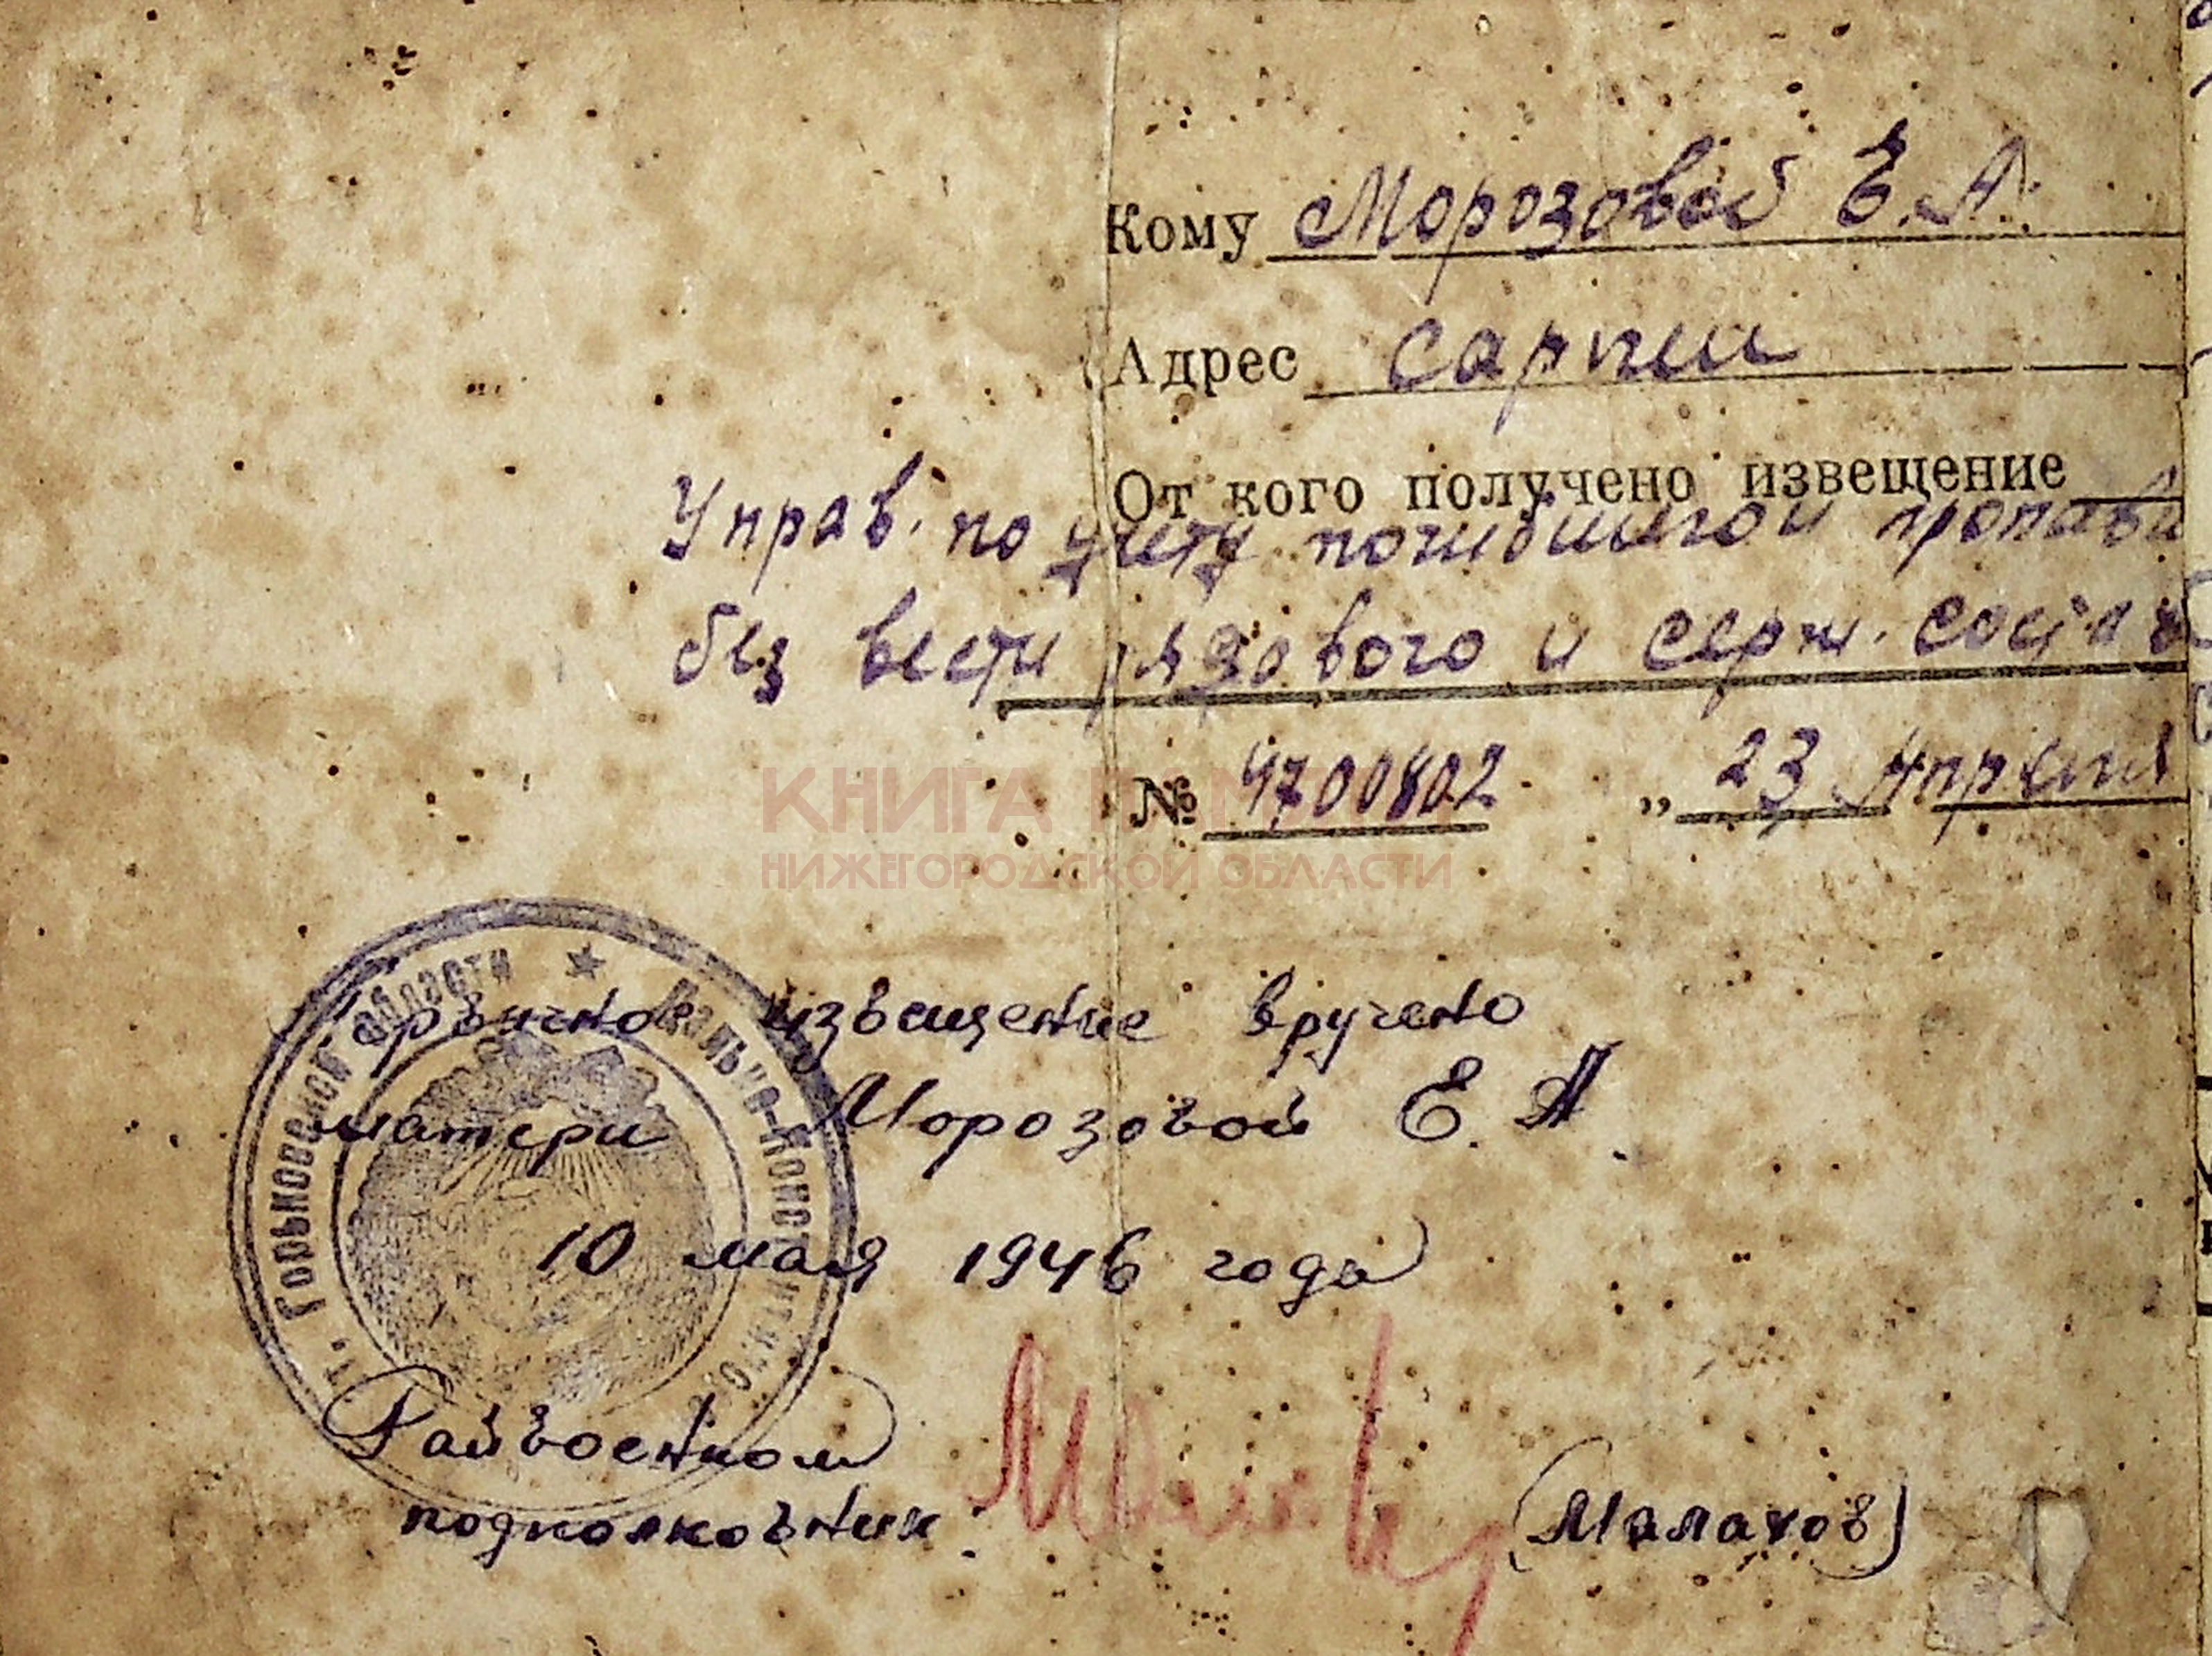 Кому Морозовой Е.А.
Адрес Сарпи
От кого получено извещение
Управ. по учету погибшего и пропавш
без вести рядового и серж. состав
№ 4700802 „ 23 Апреля
КНИГА ПАМЯТИ
НИЖЕГОРОДСКОЙ ОБЛАСТИ
извещение вручено
матери Морозовой Е. А.
10 мая 1946 года
Райвоенком
подполковник (Малахов)
Горьковской области ★